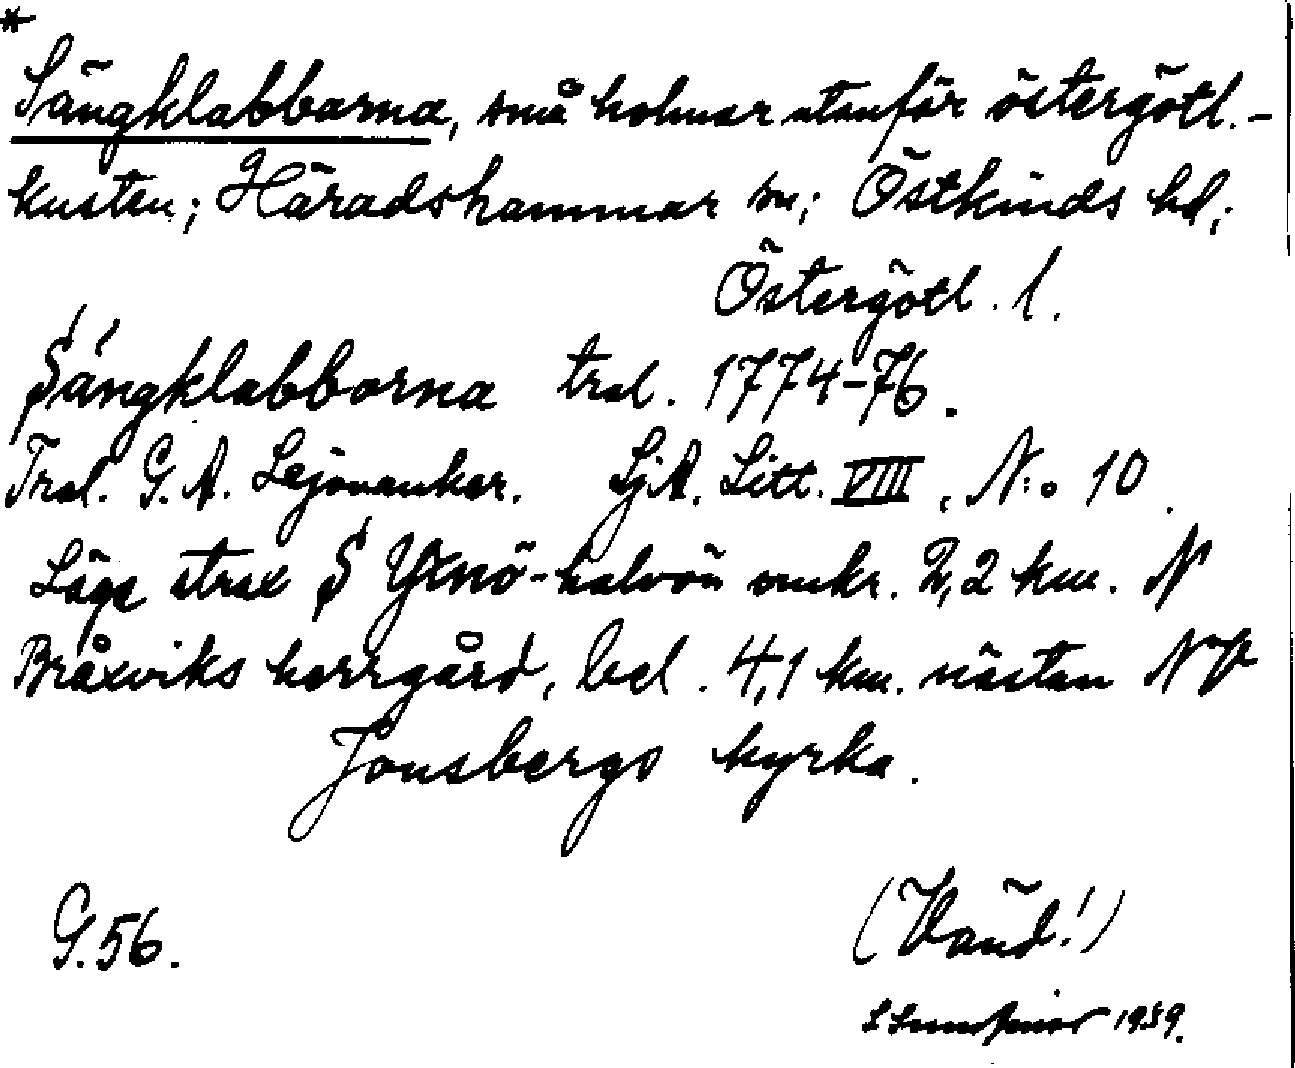 *
Sängklabbarna, små holmar utanför östergötl.-
kusten; Häradshammar sn; Östkinds hd;
Östergötl. l.
Sängklabborna tral. 1774-76.
Tral. G. A. Lejonanker. SjA. Litt. VIII, N:o 10.
Läge strax S Yxnö-halvön omkr. 2,2 km. N
Bråxviks herrgård, bel. 4,1 km. nästan NV
Jonsbergs kyrka.
G. 56.
(Vänd!)
1959.